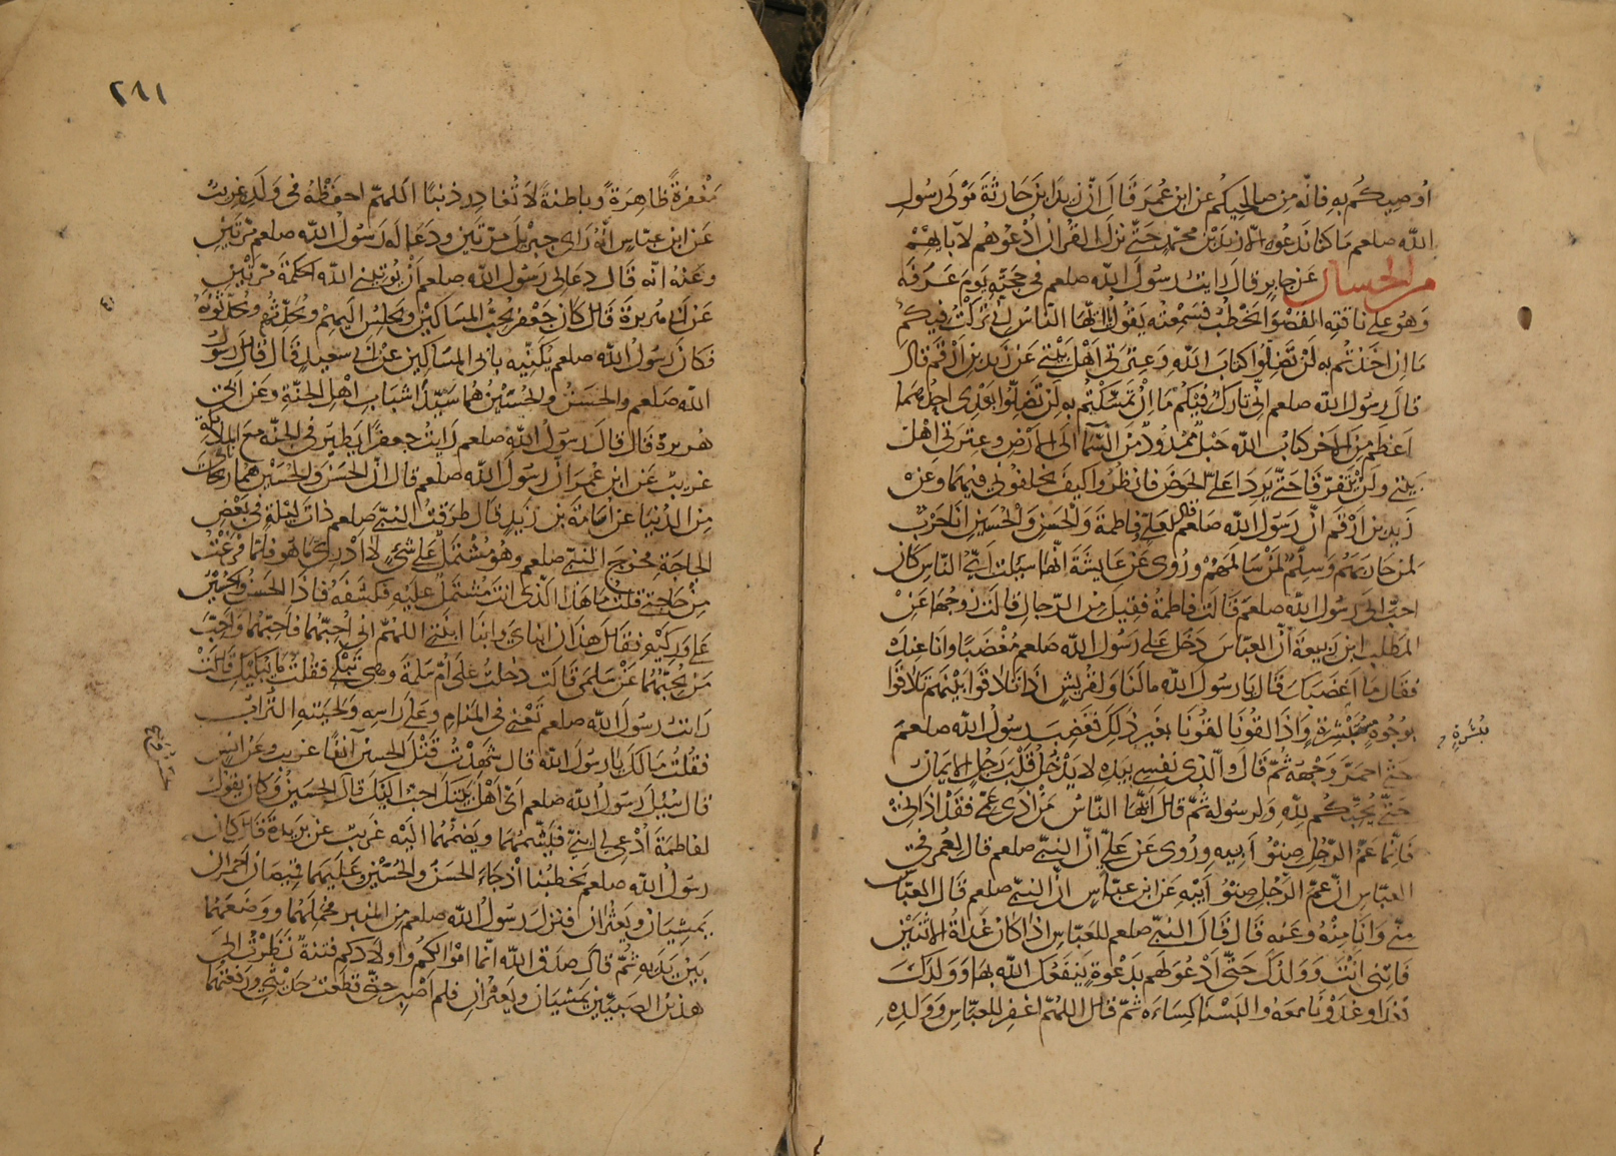 اوصيكم به فانه من صالحيكم عن ابن عمر قال ان زيد ابن حارثة مولى رسول
الله صلعم ما كنا ندعوه الا زيد بن محمد حتى نزل القران ادعوهم لآبائهم
من الحسان عن جابر قال رايت رسول الله صلعم في حجته يوم عرفة
وهو على ناقته القصوا يخطب فسمعته يقول يا ايها الناس اني تركت فيكم
ما ان اخذتم به لن تضلوا كتاب الله وعترتي اهل بيتي عن زيد بن ارقم قال
قال رسول الله صلعم اني تارك فيكم ما ان تمسكتم به لن تضلوا بعدي احدهما
اعظم من الاخر كتاب الله حبل ممدود من السما الى الارض وعترتي اهل
بيتي ولن يتفرقا حتى يردا على الحوض فانظروا كيف تخلفوني فيهما وعن
زيد بن ارقم ان رسول الله صلعم قال لعلي وفاطمة والحسن والحسين انا حرب
لمن حاربهم وسلم لمن سالمهم وروي عن عايشة انها سيلت اي الناس كان
احب الى رسول الله صلعم قالت فاطمة فقيل من الرجال قالت زوجها عن
المطلب ابن ربيعة ان العباس دخل على رسول الله صلعم مغضبا وانا عنده
فقال ما اغضبك قال يا رسول الله ما لنا ولقريش اذا تلاقوا بينهم تلاقوا
بوجوه مبشرة واذا لقونا لقونا بغير ذلك فغضب رسول الله صلعم
حتى احمر وجهه ثم قال والذي نفسي بيده لا يدخل قلب رجل الايمان
حتى يحبكم لله ولرسوله ثم قال ايها الناس من اذى عمي فقد اذاني
فانما عم الرجل صنو ابيه وروي عن علي ان النبي صلعم قال لعمر في
العباس ان عم الرجل صنو ابيه عن ابن عباس ان النبي صلعم قال العباس
مني وانا منه وعنه قال قال النبي صلعم للعباس اذا كان غداة الاثنين
فاتني انت وولدك حتى ادعو لهم بدعوة ينفعك الله بها وولدك
فغدا وغدونا معه والبسنا كساءه ثم قال اللهم اغفر للعباس وولده
٢٦١
مغفرة ظاهرة وباطنة لا تغادر ذنبا اللهم احفظه في ولده غريب
عن ابن عباس انه راى جبريل مرتين ودعا له رسول الله صلعم مرتين
وعنه انه قال دعا لي رسول الله صلعم ان يوتيني الله الحكمة مرتين
عن ابي هريرة قال كان جعفر يحب المساكين ويجلس اليهم ويحدثهم ويحدثونه
فكان رسول الله صلعم يكنيه بابي المساكين عن ابي سعيد قال قال رسول
الله صلعم والحسن والحسين هما سيدا شباب اهل الجنة وعن ابي
هريرة قال قال رسول الله صلعم رايت جعفرا يطير في الجنة مع الملائكة
غريب عن ابن عمر ان رسول الله صلعم قال ان الحسن والحسين هما ريحاناي
من الدنيا عن اسامة بن زيد قال طرقت النبي صلعم ذات ليلة في بعض
الحاجة فخرج النبي صلعم وهو مشتمل على شيء لا ادري ما هو فلما فرغت
من حاجتي قلت ما هذا الذي انت مشتمل عليه فكشفه فاذا الحسن والحسين
على وركيه فقال هذان ابناي وابنا ابنتي اللهم اني احبهما فاحبهما واحب
من يحبهما عن سلمى قالت دخلت على ام سلمة وهي تبكي فقلت ما يبكيك قالت
رايت رسول الله صلعم تعني في المنام وعلى راسه ولحيته التراب
فقلت مالك يا رسول الله قال شهدت قتل الحسين آنفا غريب وعن انس
قال سيل رسول الله صلعم اي اهل بيتك احب اليك قال الحسن والحسين وكان يقول
لفاطمة ادعي لي ابني فيشمهما ويضمهما اليه غريب عن بريدة قال كان
رسول الله صلعم يخطبنا اذ جاء الحسن والحسين وعليهما قميصان احمران
يمشيان ويعثران فنزل رسول الله صلعم من المنبر فحملهما ووضعهما
بين يديه ثم قال صدق الله انما اموالكم واولادكم فتنة نظرت الى
هذين الصبيين يمشيان ويعثران فلم اصبر حتى قطعت حديثي ورفعتهما